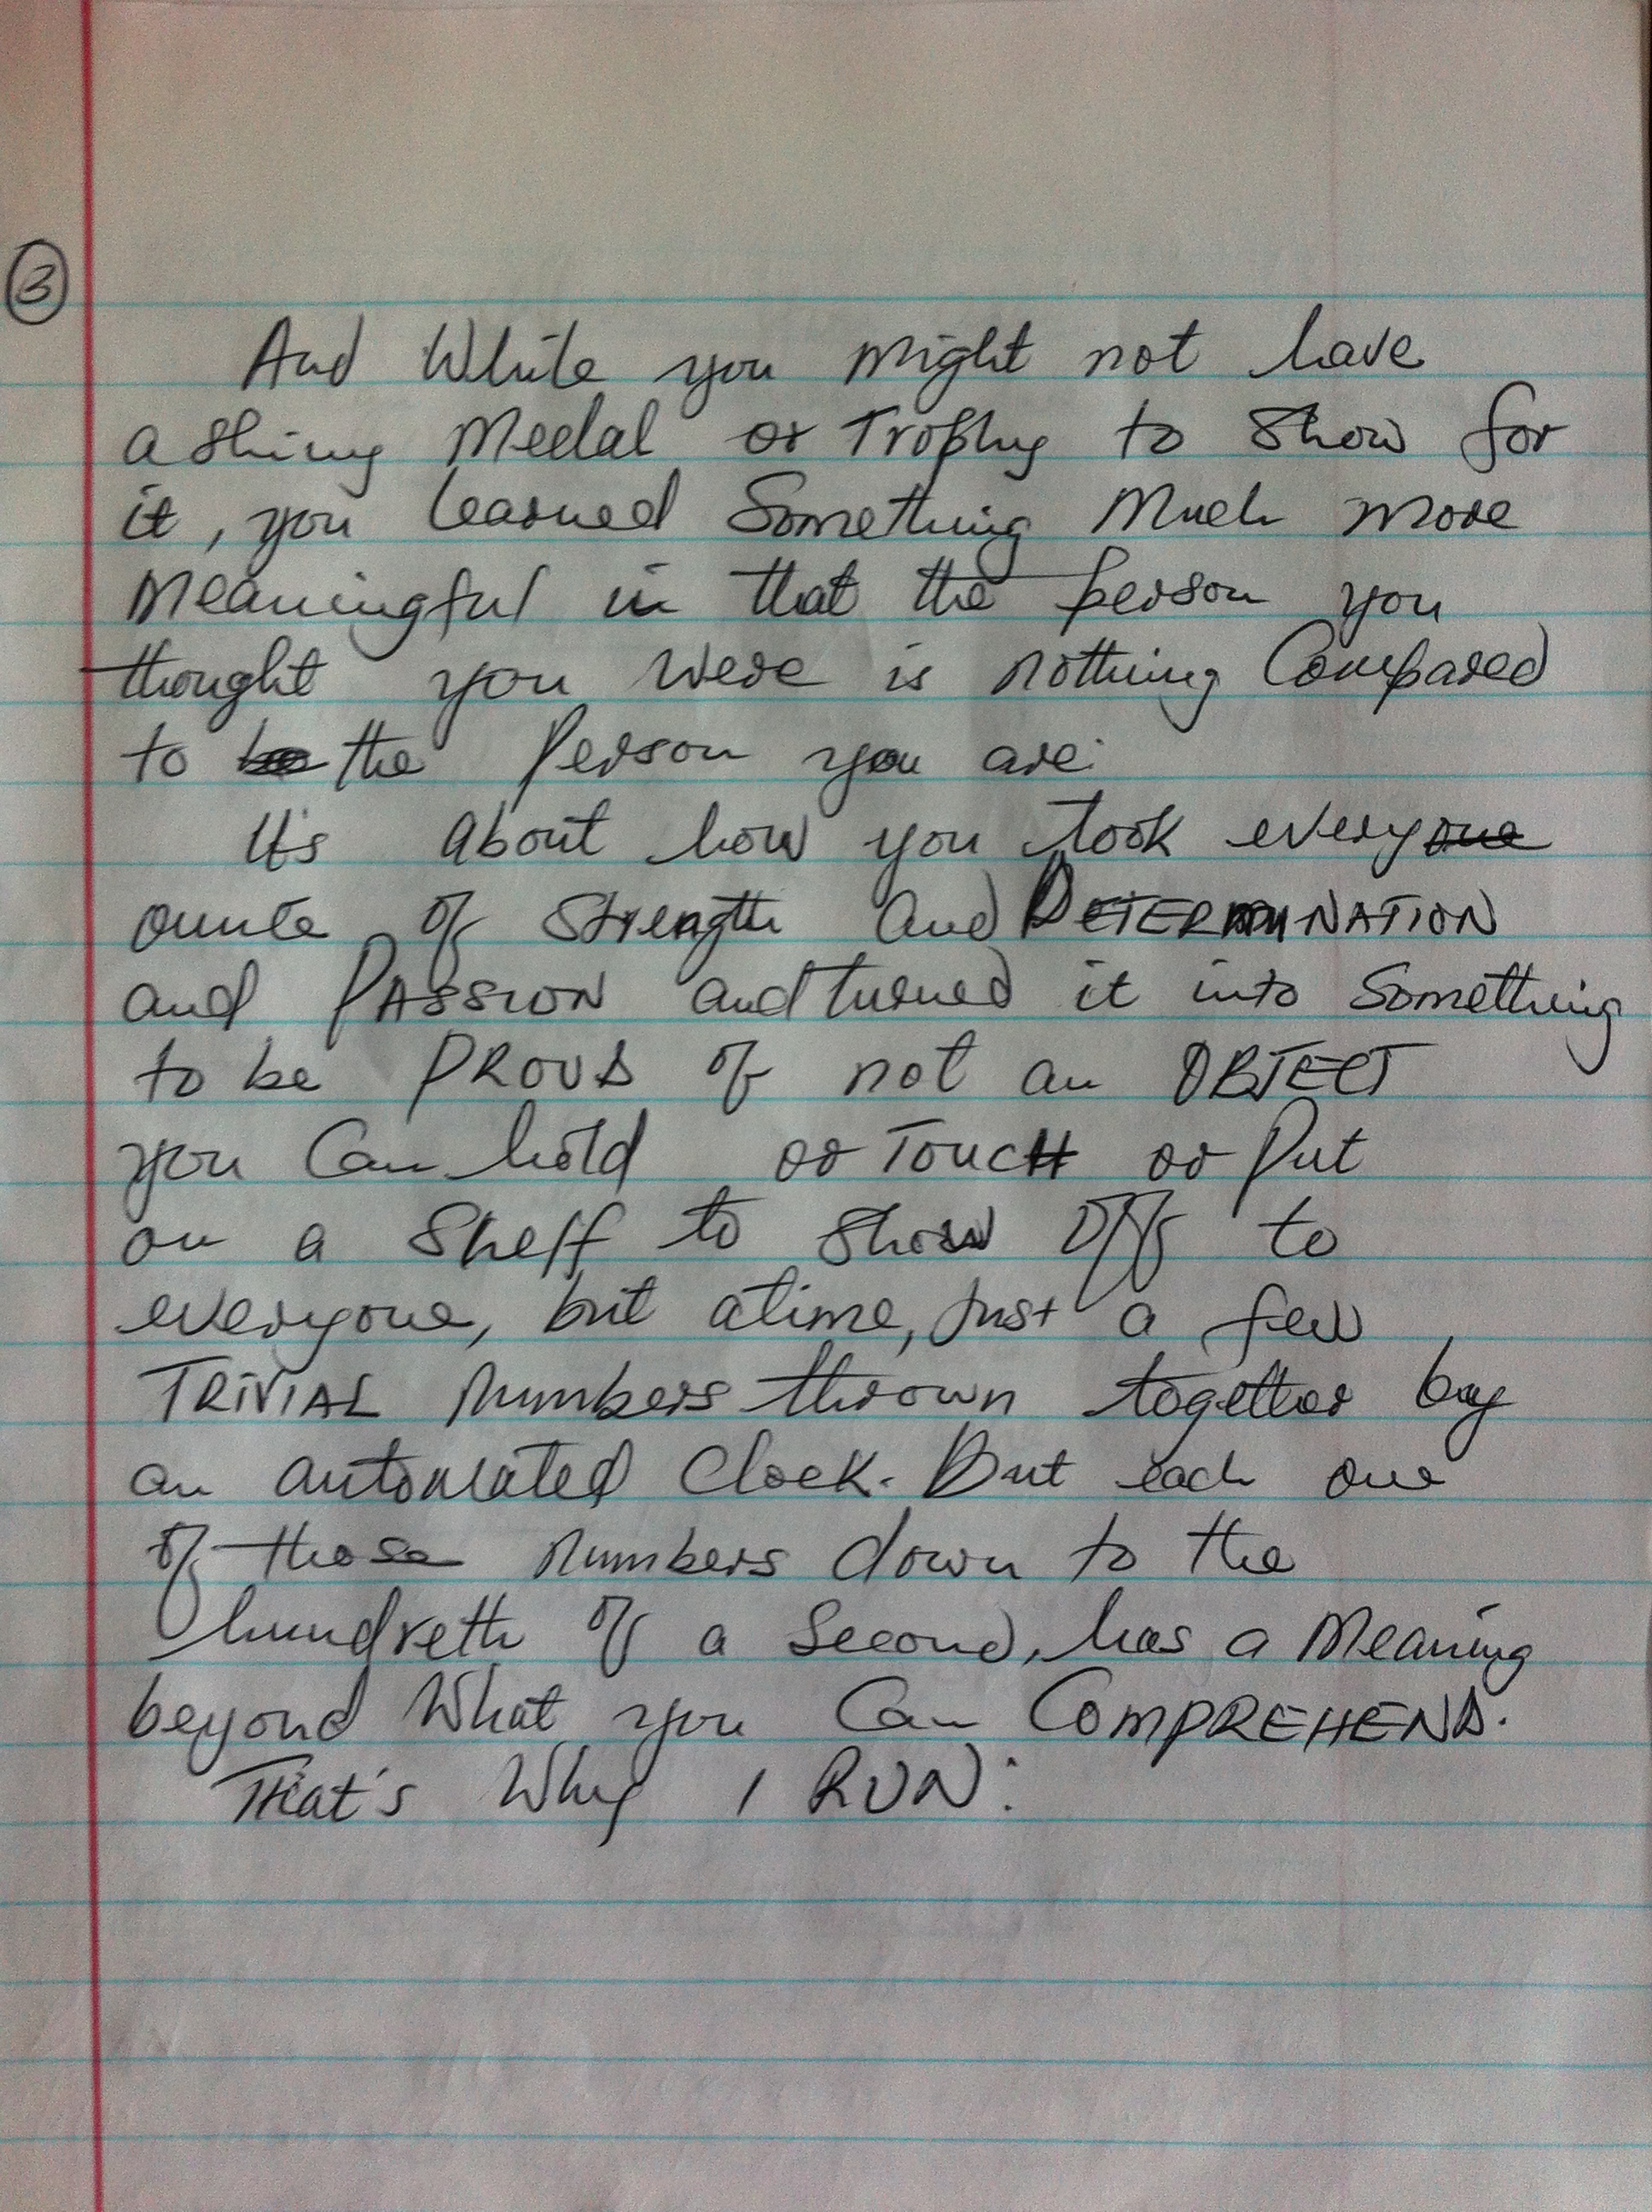 3
And While you might not have
a shiny Medal or Trophy to Show for
it, you learned Something Much more
Meaningful in that the person you
thought you were is nothing Compared
to be the Person you are.
It's about how you took everyone
ounce of Strength and DETERMINATION
and PASSION and turned it into Something
to be PROUD of not an OBJECT
you Can hold or TOUCH or Put
on a Shelf to Show Off to
everyone, but a time, Just a few
TRIVIAL numbers thrown together by
an automated Clock. But each one
of those numbers down to the
hundreth of a Second, has a Meaning
beyond What you Can COMPREHEND.
That's Why I RUN.